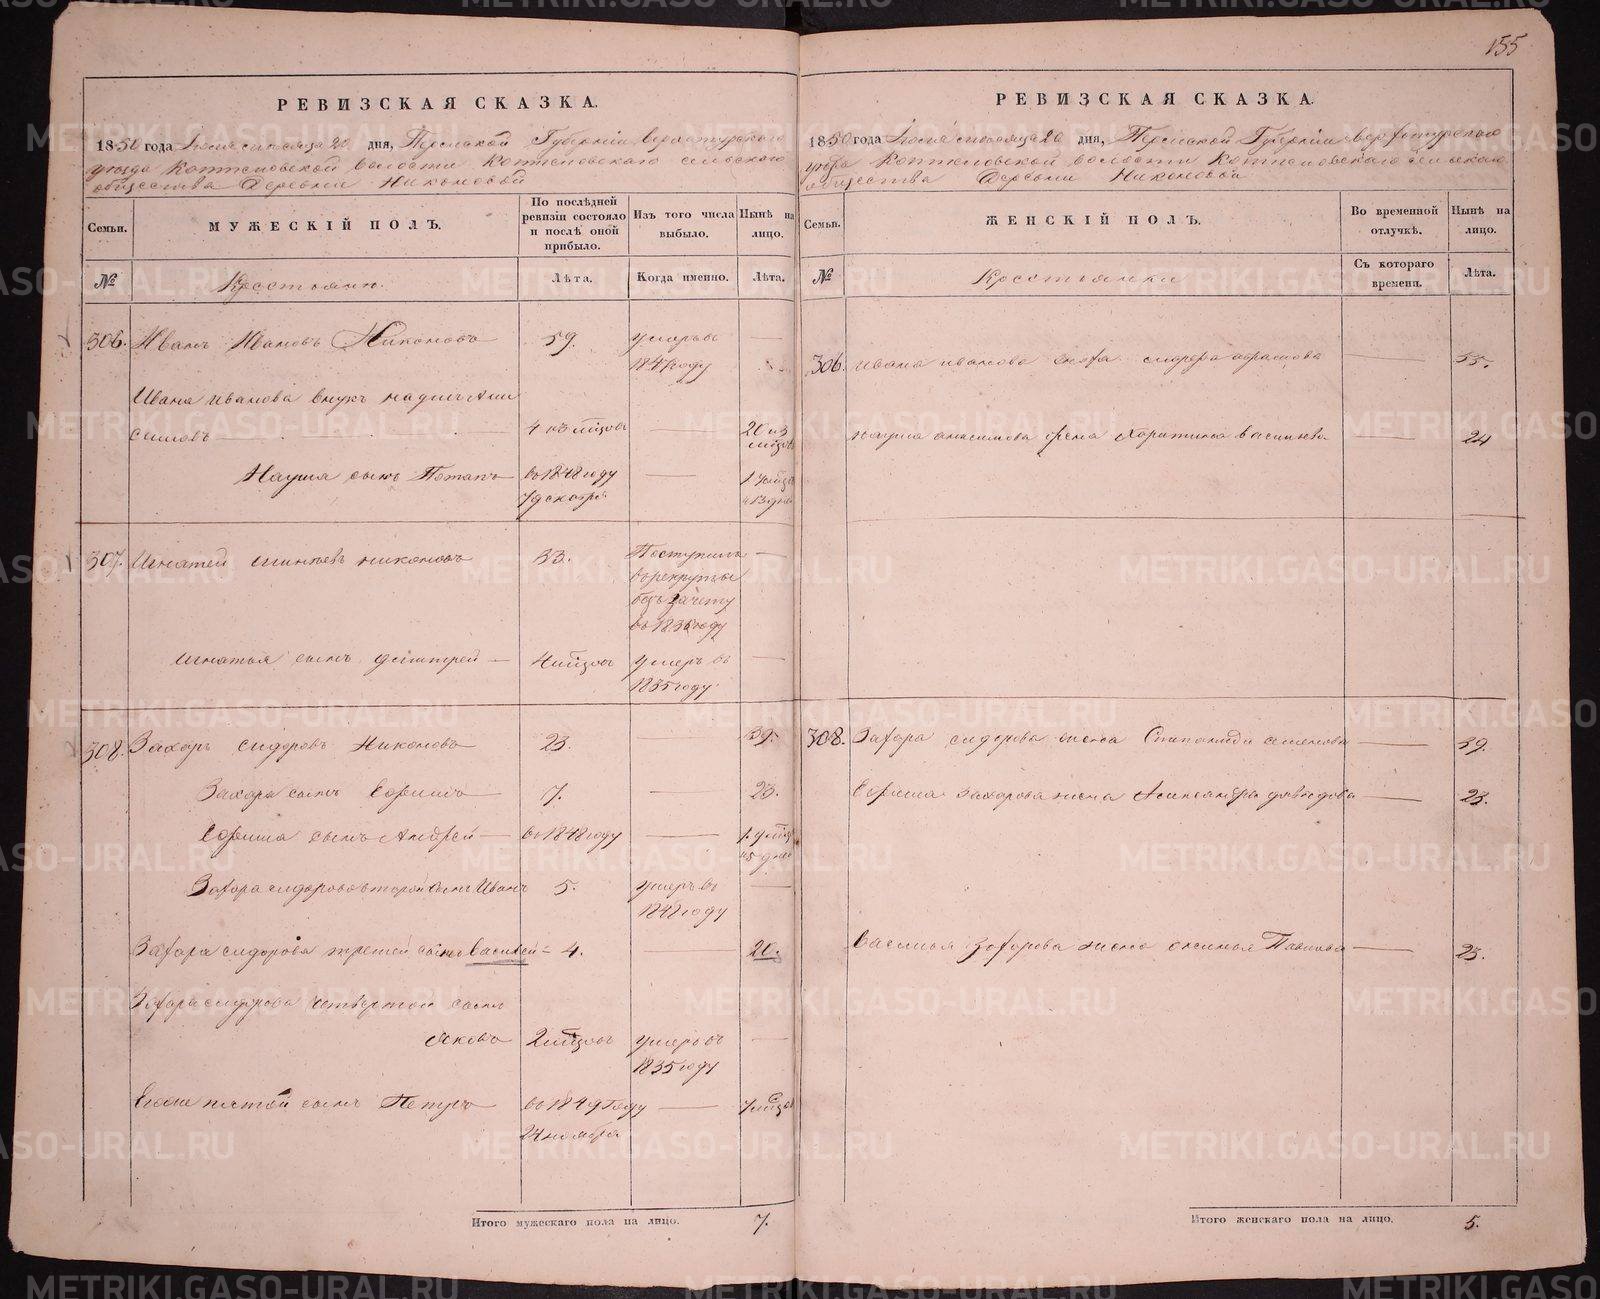 155
РЕВИЗСКАЯ СКАЗКА.
1850 года Июня месяца 20 дня, Пермской Губерніи Верхотурскаго
уезда Коптеловской волости Коптеловскаго сельскаго
общества Деревни Никоновой
Семьи.
МУЖЕСКІЙ ПОЛЪ.
По послѣдней ревизіи состояло и послѣ оной прибыло.
Изъ того числа выбыло.
Нынѣ на лицо.
№
Крестьяне.
Лѣта.
Когда именно.
Лѣта.
306. Иванъ Ивановъ Никоновъ 59. умеръ въ —
1849 году
Ивана Иванова внукъ Наумъ Ани
симовъ 4 из мѣсяцовъ — 20 из
мѣсяцовъ
Наума сынъ Потапъ въ 1848 году — 1
7 декабря
307. Игнатей Никоновъ 33. Поступилъ —
в рекруты
безъ зачету
въ 1835 году
Игнатья сынъ Дмитрей — умеръ въ —
1835 году
308. Захаръ Сидоровъ Никоновъ 23. — 39.
Захара сынъ Ефимъ 7. — 23.
Ефима сынъ Андрей — въ 1848 году — 1.
Захара Сидорова второй сынъ Иванъ 5. умеръ въ —
1842 году
Захара Сидорова третей сынъ Василей 4. — 20.
Захара Сидорова четвертой сынъ
Яковъ 2 умеръ въ —
1835 году
пятой сынъ Петръ въ 1849 году — 7
24 ноября
Итого мужескаго пола на лицо. 7.
РЕВИЗСКАЯ СКАЗКА.
1850 года Июня месяца 20 дня, Пермской Губерніи Верхотурскаго
уезда Коптеловской волости Коптеловскаго сельскаго
общества Деревни Никоновой
Семьи.
ЖЕНСКІЙ ПОЛЪ.
Во временной отлучкѣ.
Нынѣ на лицо.
№
Крестьянки
Съ котораго времени.
Лѣта.
306. Ивана Иванова сноха 55.
Наума Анисимова жена Харитина — 24
308. Захара Сидорова жена Семенова — 39.
Ефима Захарова жена Александра — 23.
Василья Захарова жена Павлова — 23.
Итого женскаго пола на лицо. 5.
METRIKI.GASO-URAL.RU